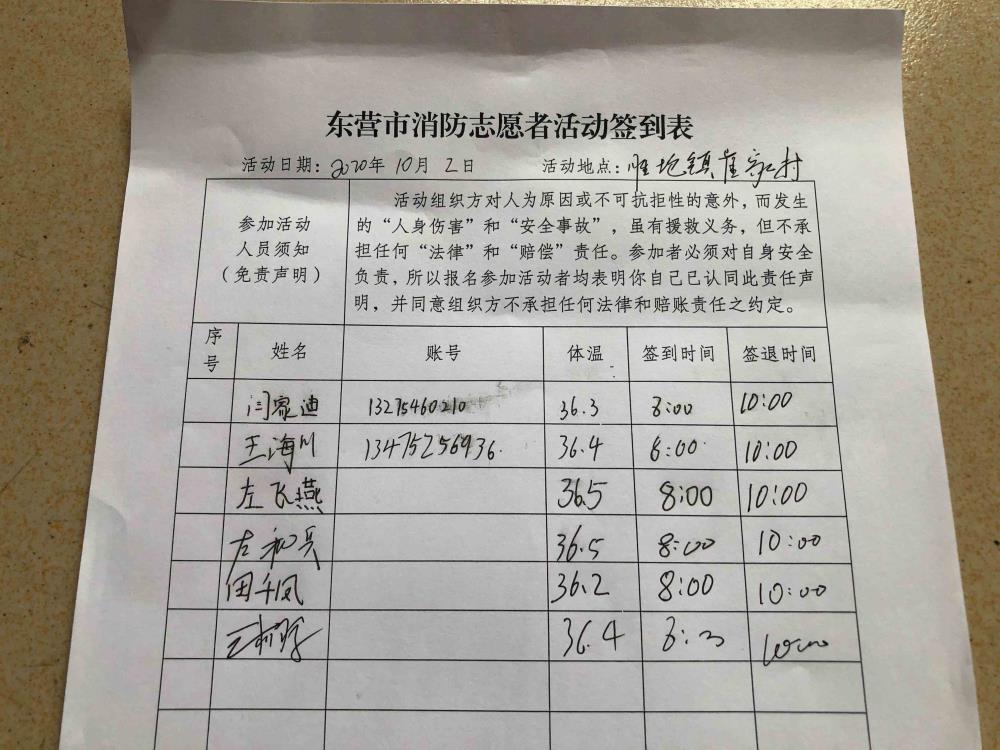 东营市消防志愿者活动签到表
活动日期：2020年10月2日 活动地点：镇崔家村
参加活动
人员须知
（免责声明）
活动组织方对人为原因或不可抗拒性的意外，而发生
的“人身伤害”和“安全事故”，虽有援救义务，但不承
担任何“法律”和“赔偿”责任。参加者必须对自身安全
负责，所以报名参加活动者均表明你自己已认同此责任声
明，并同意组织方不承担任何法律和赔账责任之约定。
序号 姓名 账号 体温 签到时间 签退时间
闫家迪 13275460210 36.3 8:00 10:00
王海川 13475256936. 36.4 8:00 10:00
左飞燕 36.5 8:00 10:00
左和兵 36.5 8:00 10:00
田千凤 36.2 8:00 10:00
36.4 10:00